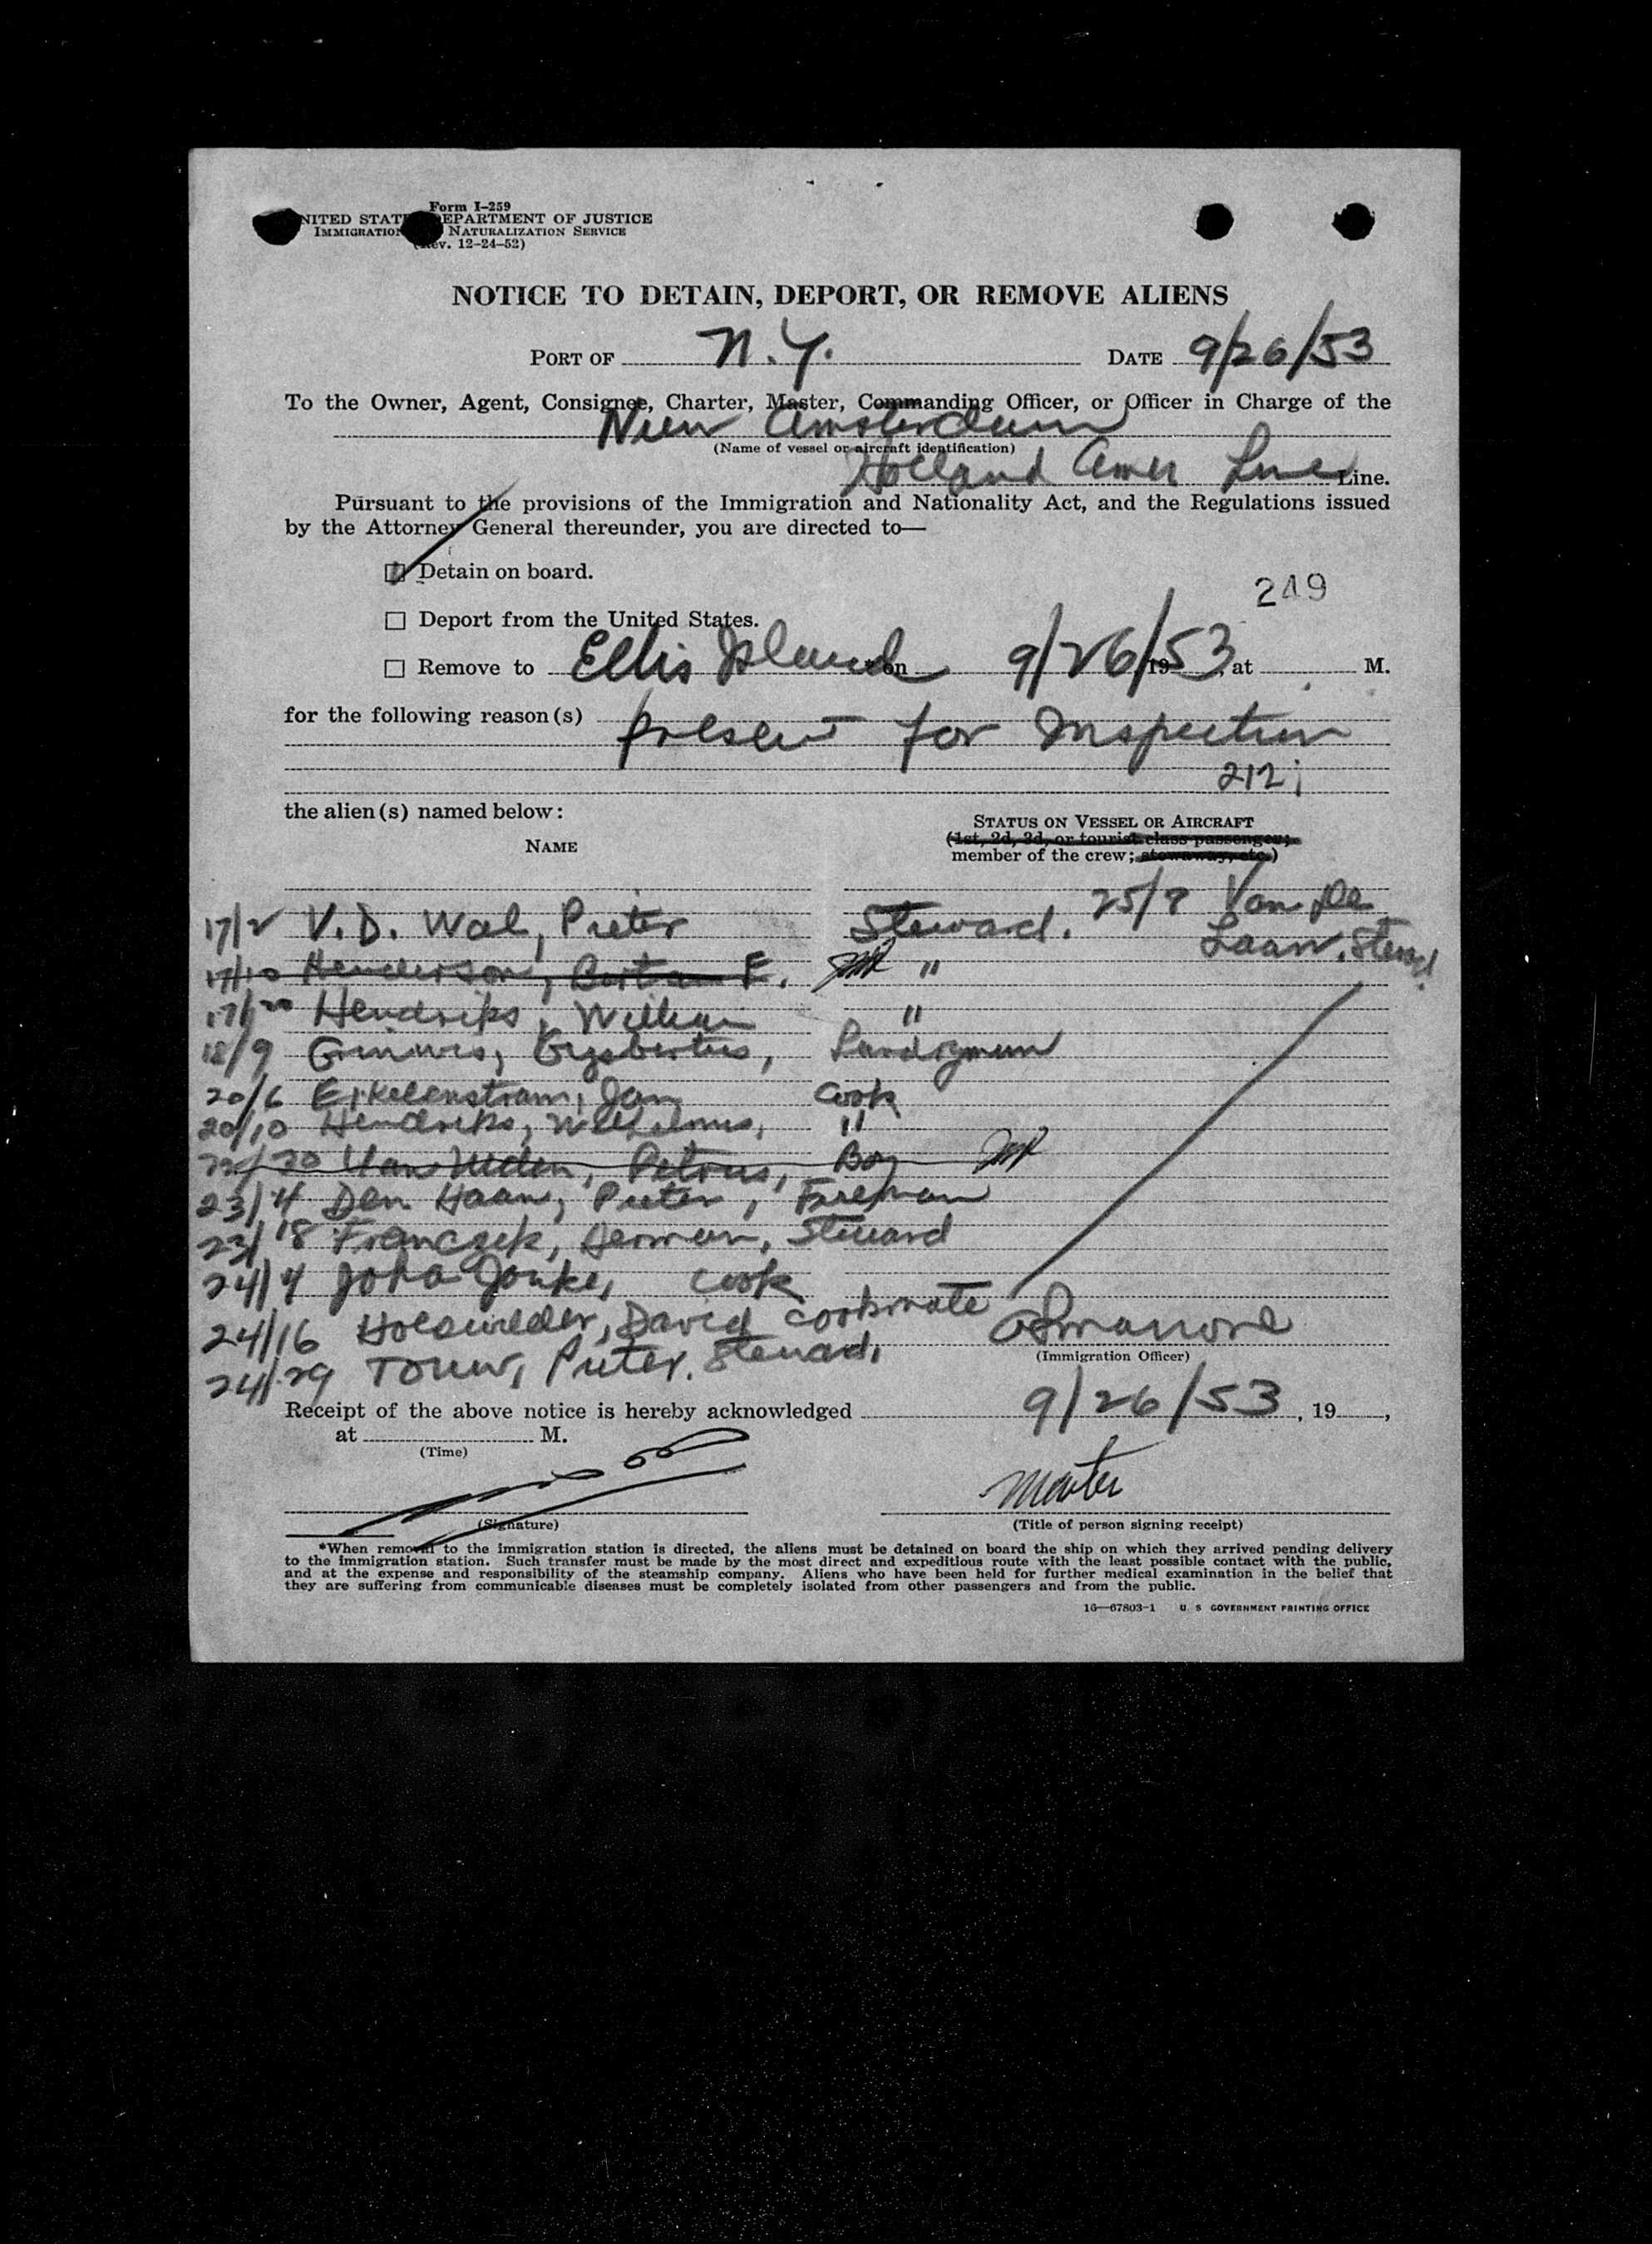 Form I-259
NITED STAT EPARTMENT OF JUSTICE
IMMIGRATION NATURALIZATION SERVICE
(Rev. 12-24-52)
NOTICE TO DETAIN, DEPORT, OR REMOVE ALIENS
PORT OF N.Y. DATE 9/26/53
To the Owner, Agent, Consignee, Charter, Master, Commanding Officer, or Officer in Charge of the
Nieuw Amsterdam
(Name of vessel or aircraft identification)
Holland Amer Line Line.
Pursuant to the provisions of the Immigration and Nationality Act, and the Regulations issued
by the Attorney General thereunder, you are directed to—
Detain on board.
249
Deport from the United States.
Remove to Ellis Island * on 9/26/53 19 at M.
for the following reason(s) present for Inspection
212
the alien(s) named below:
STATUS ON VESSEL OR AIRCRAFT
(1st, 2d, 3d, or tourist class passenger;
NAME
member of the crew; stowaway, etc.)
25/8 Van De
17/2 V.D. Wal, Pieter Steward.
Laan, Stewd.
17/10 Henderson, F. "
17/20 Hendriks, William "
18/9 Gysbertus,
20/6 Jan Cook
20/10 Hendriks, Wilhelmus, "
22/20 Van Petrus, Boy
23/4 Den Haan, Pieter, Fireman
23/18 Franczek, Herman, Steward
24/4 Jonker, Cook
24/16 David Cooksmate
24/29 Touw, Pieter. Steward.
(Immigration Officer)
Receipt of the above notice is hereby acknowledged 9/26/53, 19 ,
at M.
(Time)
Master
(Signature) (Title of person signing receipt)
*When removal to the immigration station is directed, the aliens must be detained on board the ship on which they arrived pending delivery
to the immigration station. Such transfer must be made by the most direct and expeditious route with the least possible contact with the public,
and at the expense and responsibility of the steamship company. Aliens who have been held for further medical examination in the belief that
they are suffering from communicable diseases must be completely isolated from other passengers and from the public.
16—67803-1 U. S. GOVERNMENT PRINTING OFFICE